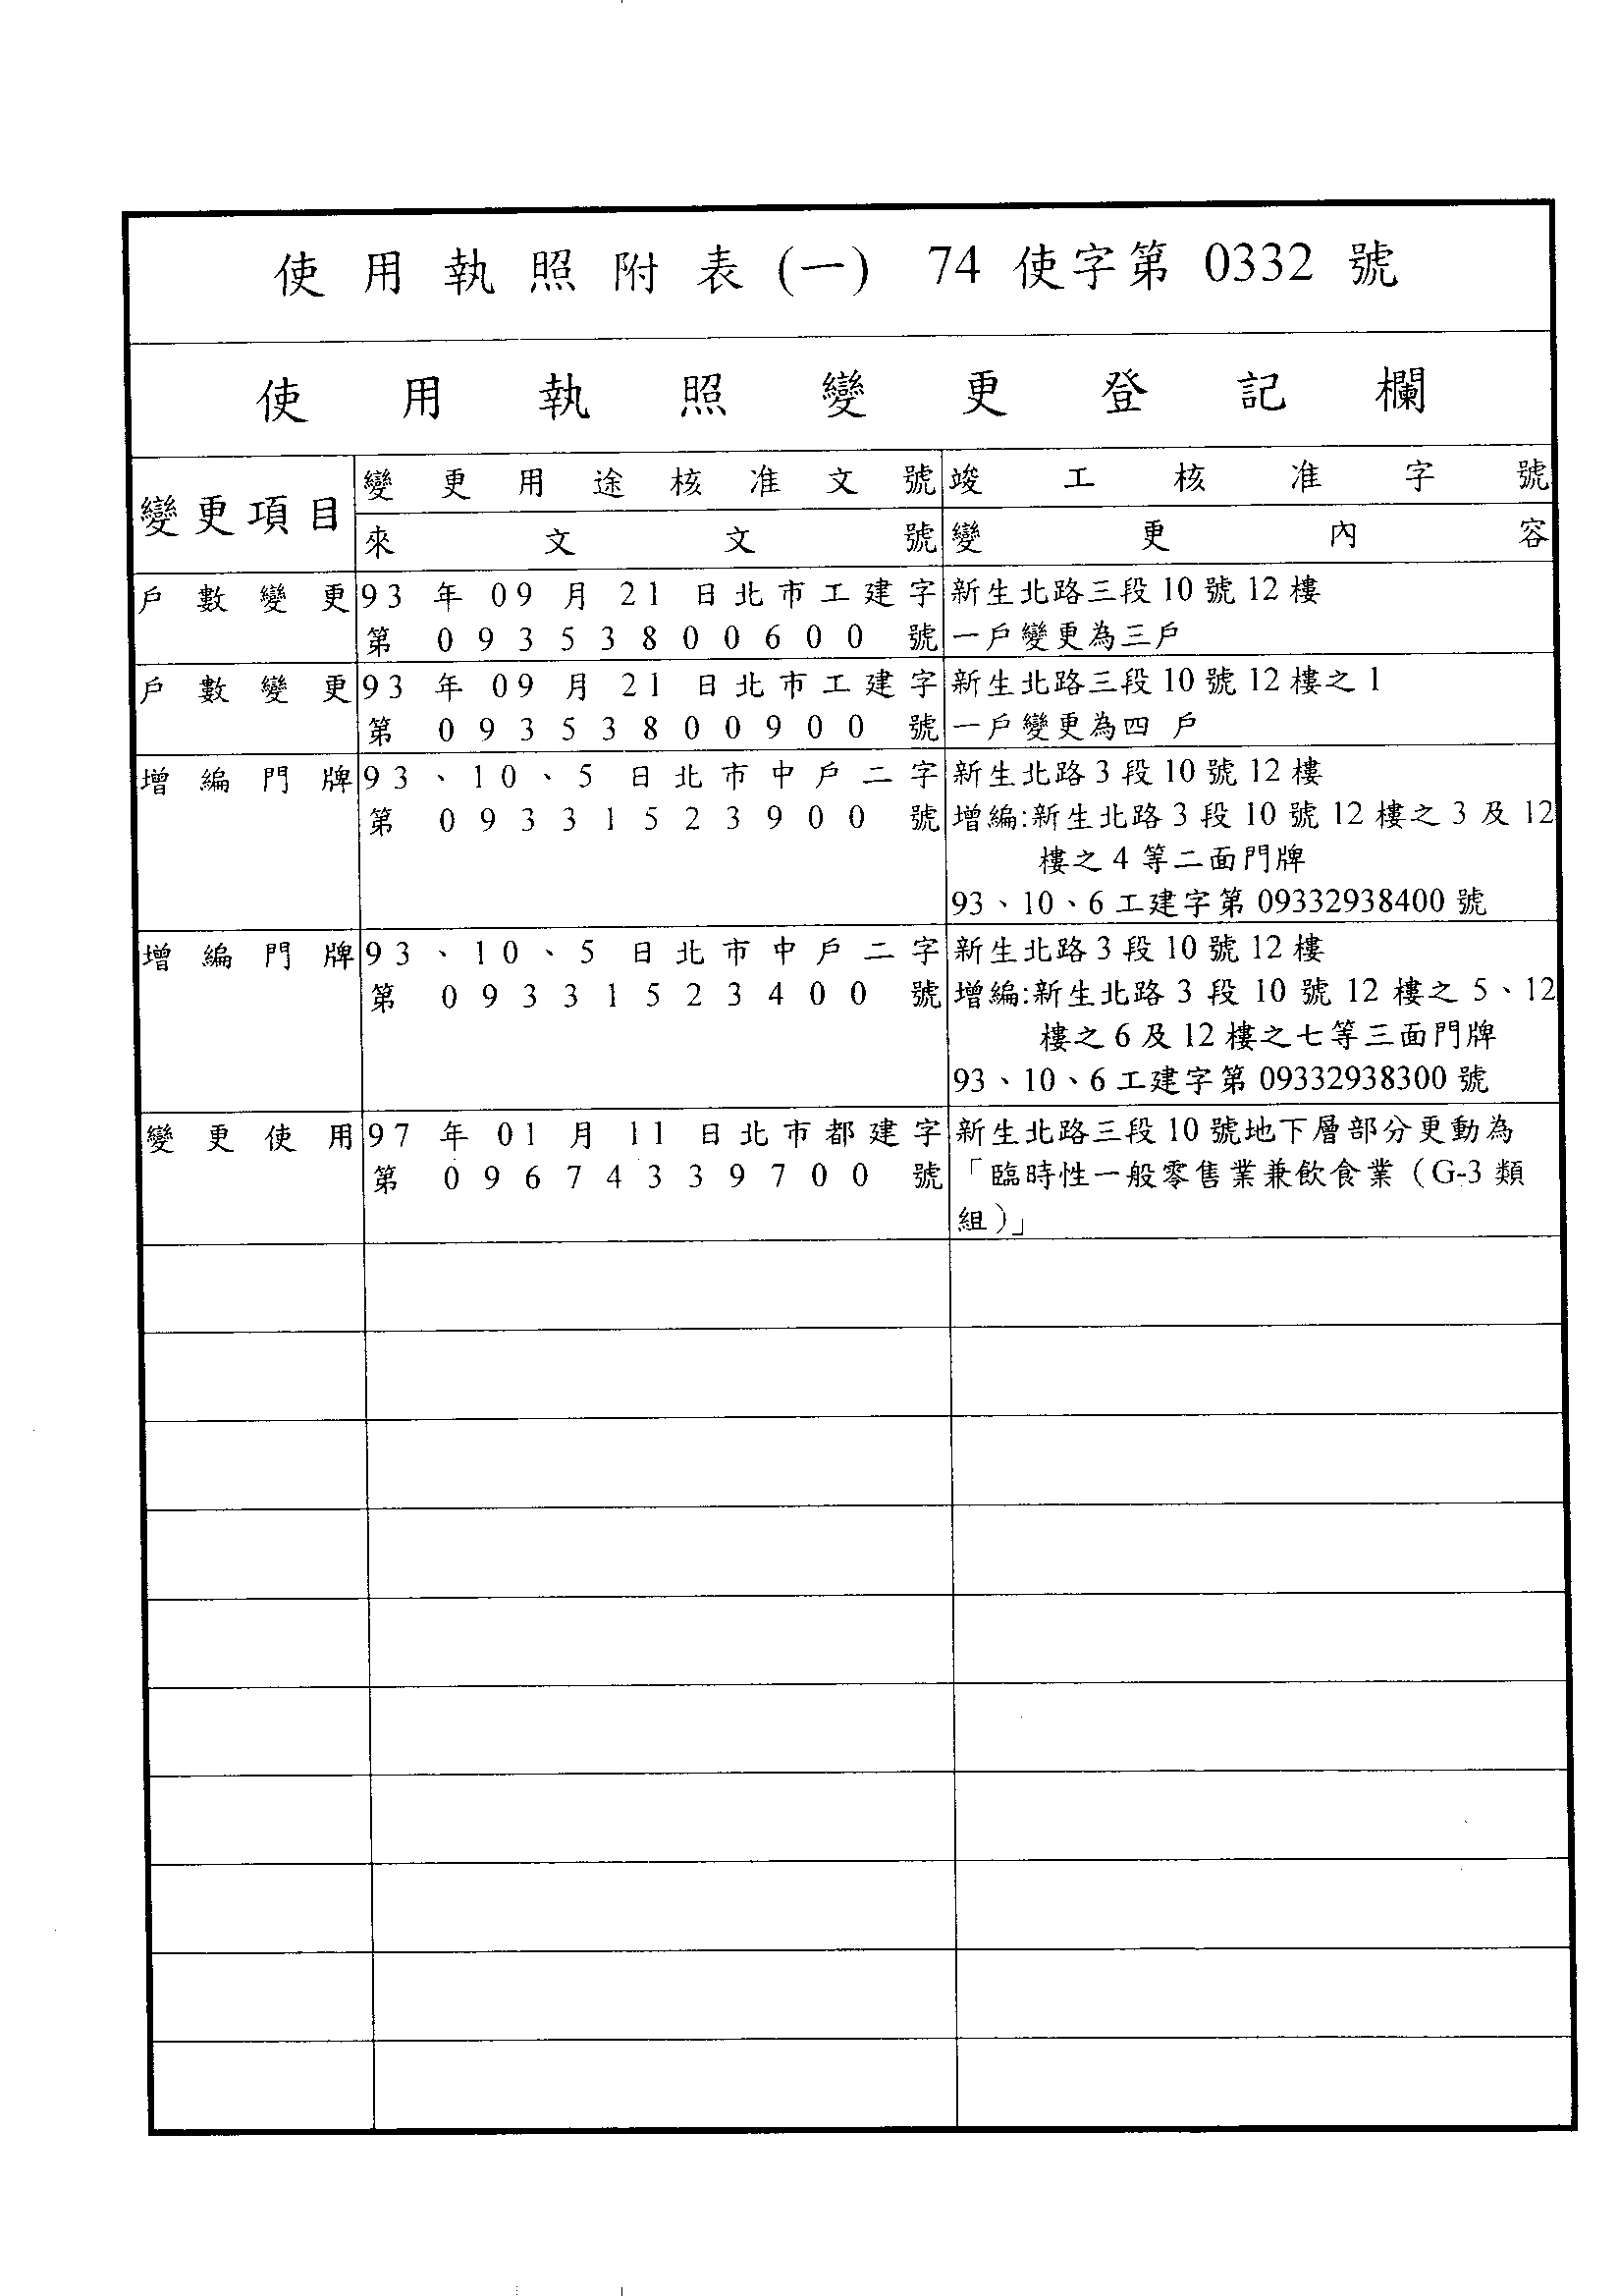 使用執照附表(一) 74 使字第 0332 號
使用執照變更登記欄
變更項目
變更用途核准文號
竣工核准字號
來文文號
變更內容
戶數變更
93 年 09 月 21 日北市工建字
第 09353800600 號
新生北路三段 10 號 12 樓
一戶變更為三戶
戶數變更
93 年 09 月 21 日北市工建字
第 09353800900 號
新生北路三段 10 號 12 樓之 1
一戶變更為四 戶
增編門牌
93、10、5 日北市中戶二字
第 09331523900 號
新生北路 3 段 10 號 12 樓
增編:新生北路 3 段 10 號 12 樓之 3 及 12
樓之 4 等二面門牌
93、10、6 工建字第 09332938400 號
增編門牌
93、10、5 日北市中戶二字
第 09331523400 號
新生北路 3 段 10 號 12 樓
增編:新生北路 3 段 10 號 12 樓之 5、12
樓之 6 及 12 樓之七等三面門牌
93、10、6 工建字第 09332938300 號
變更使用
97 年 01 月 11 日北市都建字
第 09674339700 號
新生北路三段 10 號地下層部分更動為
「臨時性一般零售業兼飲食業（G-3 類
組）」